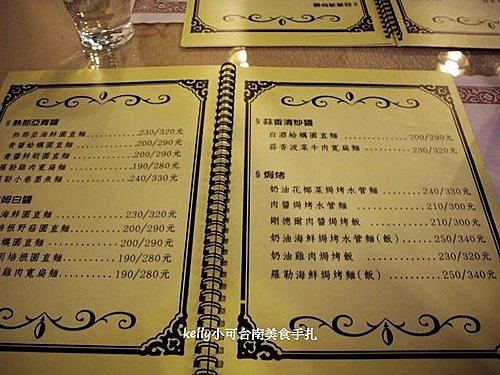 §熱那亞青醬
熱那亞海鮮圓直麵 230/320元
青醬蛤蠣圓直麵 200/290元
青醬鮮蝦圓直麵 200/290元
羅勒雞肉寬扁麵 190/280元
羅勒小卷墨魚麵 240/330元
姆白醬
海鮮圓直麵 230/320元
培根野菇圓直麵 200/290元
蠣圓直麵 200/290元
培根圓直麵 190/280元
雞肉寬扁麵 190/280元
§蒜香清炒醬
白酒蛤蠣圓直麵 200/290元
蒜香波菜牛肉寬扁麵 230/320元
§焗烤
奶油花椰菜焗烤水管麵 240/330元
肉醬焗烤水管麵 210/300元
剛德爾肉醬焗烤飯 210/300元
奶油海鮮焗烤水管麵(飯) 250/340元
奶油雞肉焗烤飯 230/320元
羅勒海鮮焗烤麵(飯) 250/340元
kelly小可台南美食手扎